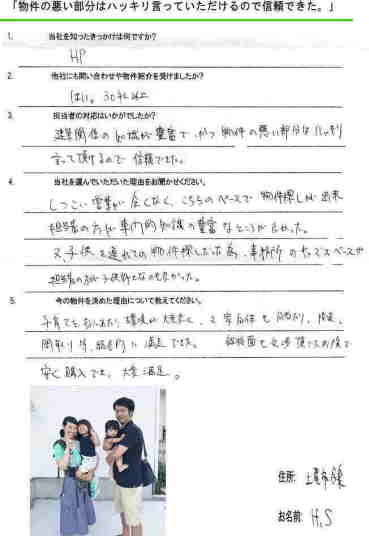 「物件の悪い部分はハッキリ言っていただけるので信頼できた。」
1. 当社を知ったきっかけは何ですか?
HP
2. 他社にも問い合わせや物件紹介を受けましたか?
はい。30社以上
3. 担当者の対応はいかがでしたか?
建築関係の知識が豊富で、かつ物件の悪い部分はハッキリ
言って頂けるので信頼できた。
4. 当社を選んでいただいた理由をお聞かせください。
しつこい営業が全くなく、こちらのペースで物件探しが出来
担当者の方が専門的知識の豊富なところが良かった。
又、子供を連れての物件探しだった為、事務所のキッズスペースや
担当者の方が子供好きなのも良かった。
5. 今の物件を決めた理由について教えてください。
子育てをするにあたり環境が大変良く、又家自体も
間取り等、総合的に満足できた。
安く購入でき、大変満足。
住所:
お名前: H.S